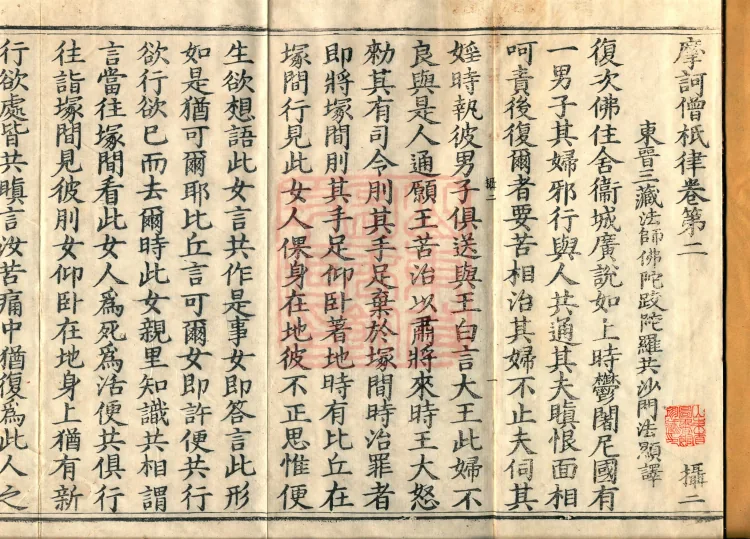 摩訶僧祇律卷第二 攝二
東晉三藏法師佛陀跋陀羅共沙門法顯譯
復次佛住舍衞城廣說如上時鬱闍尼國有
一男子其婦邪行與人共通其夫瞋恨面相
呵責後復爾者要苦相治其婦不止夫伺其
攝二 一
婬時執彼男子俱送與王白言大王此婦不
良與是人通願王苦治以肅將來時王大怒
勑其有司令刖其手足棄於塚間時治罪者
即將塚間刖其手足仰卧著地時有比丘在
塚間行見此女人倮身在地彼不正思惟便
生欲想語此女言共作是事女即答言此形
如是猶可爾耶比丘言可爾女即許便共行
欲行欲已而去爾時此女親里知識共相謂
言當往塚間看此女人爲死爲活便共俱行
往詣塚間見彼刖女仰卧在地身上猶有新
行欲處皆共瞋言汝苦痛中猶復爲此人之